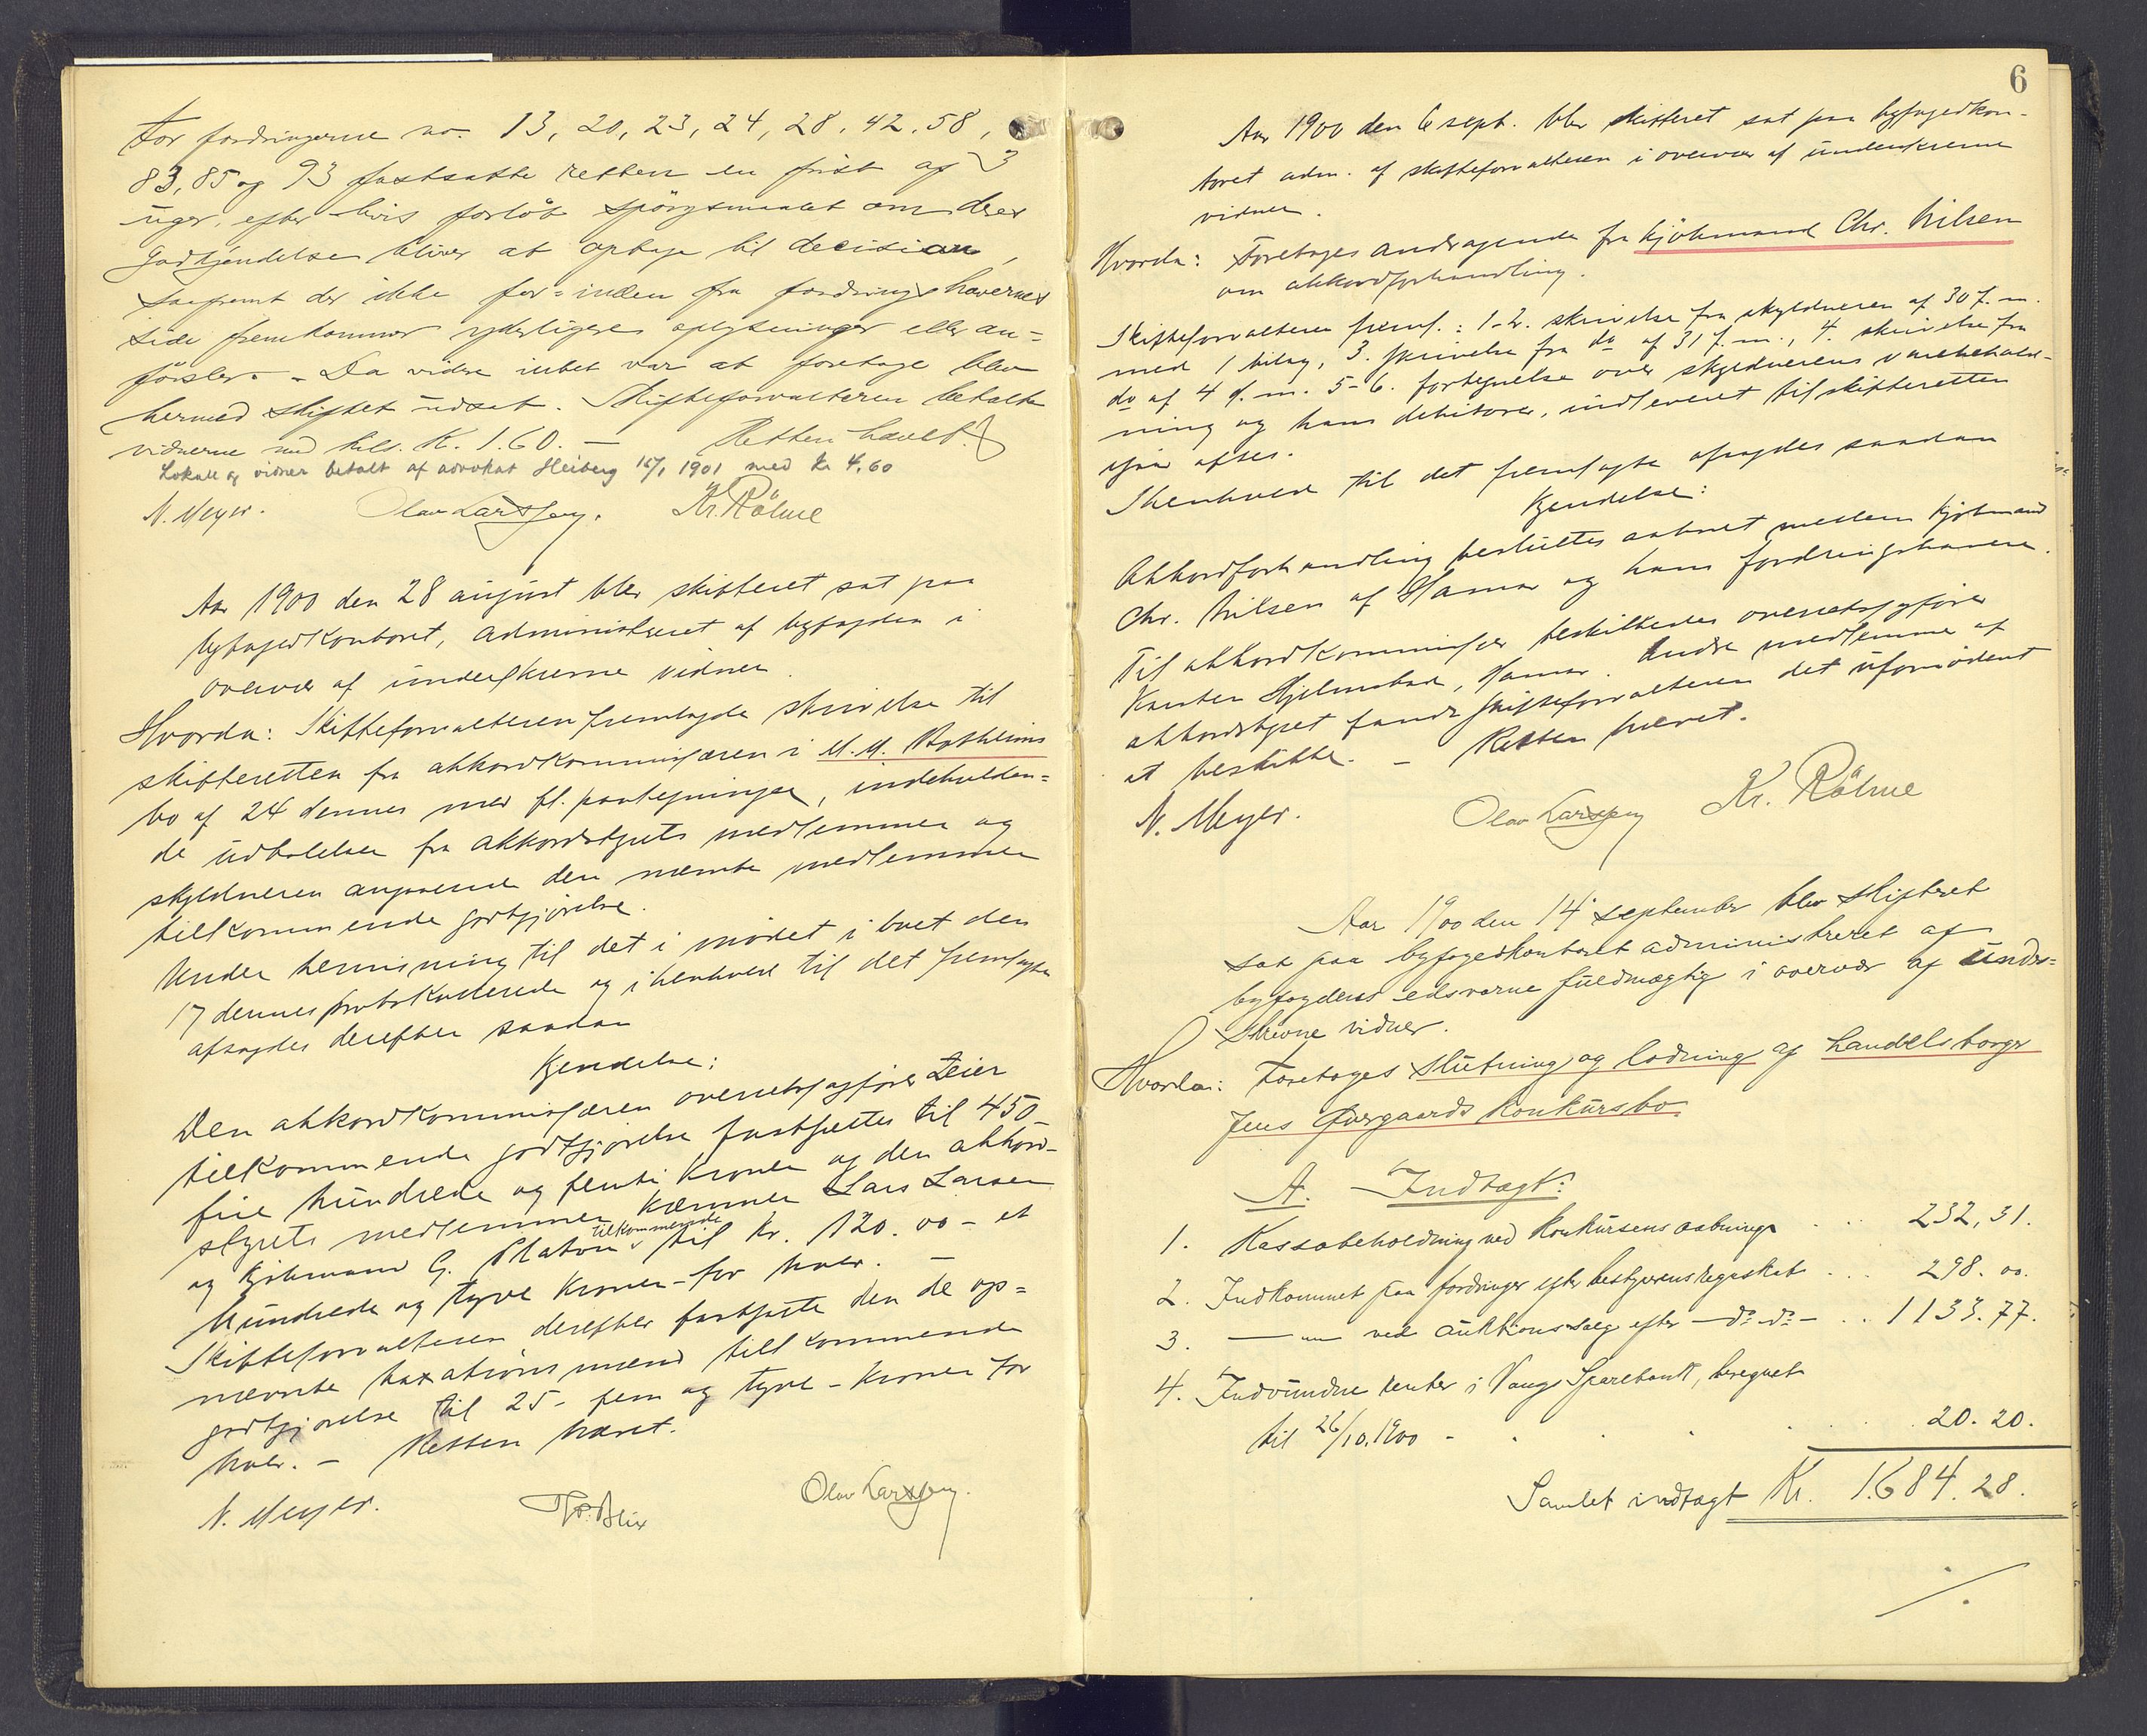 For fordringerne no. 13, 20, 23, 24, 28, 42, 58,
83, 85 og 93 fastsatte retten en frist af 3
uger, efter hvis forløb spörgsmaalet om deres
godkjendelse bliver at optage til decision,
saafremt der ikke for-inden fra fordringshavernes
side fremkommer yderligere oplysninger eller an=
førsler. - Da videre intet var at foretage blev
hermed skiftet udsat. Skifteforvalteren betalte
vidnerne med tils. K. 1.60. — Retten hævet.
Lokale og vidner betalt af advokat Heiberg 16/1 1901 med kr 4,60
N. Meyer. Olav Larssen. Kr. Röhne
Aar 1900 den 28 august blev skifteret sat paa
byfogedkontoret, administreret af byfogden i
overvær af underskrevne vidner.
Hvorda: Skifteforvalteren fremlagde skrivelse til
skifteretten fra akkordkommissæren i M. M. Bothheims
bo af 24 dennes med fl. paategninger, indeholden=
de udtalelser fra akkordstyrets medlemmer og
skyldneren angaaende den nævnte medlemmer
tilkommende godtgjörelse.
Under henvisning til det i mödet i boet den
17 dennes protokollerede og i henhold til det fremlagte
afsagdes derefter saadan
Kjendelse:
Den akkordkommissæren overretssagfører Zeier
tilkommende godtgjörelse fastsættes til 450
fire hundrede og femti kroner og den akkord-
styrets medlemmer kæmner Lars Larsen
og kjöbmand G. Platou tilkommende til kr. 120.00 - et
hundrede og tyve kroner - for hver. —
Skifteforvalteren derefter fastsatte den de op=
nævnte taxationsmænd tilkommende
godtgjörelse til 25 - fem og tyve - kroner for
hver. - Retten hævet.
N. Meyer. Th. Blix Olav Larssen.
6
Aar 1900 den 6 sept. blev skifteret sat paa byfogedkon-
toret adm. af skifteforvalteren i overvær af underskrevne
vidner.
Hvorda: Foretages andragende fra kjöbmand Chr. Nilsen
om akkordforhandling.
Skifteforvalteren freml.: 1-2. skrivelse fra skyldneren af 30 f. m.
med 1 bilag, 3. skrivelse fra do af 31 f. m., 4. skrivelse fra
do af 4 d. m. 5-6. fortegnelse over skyldnerens varebehold-
ning og hans debitorer, indleveret til skifteretten
igaar aftes.
I henhold til det fremlagte afsagdes saadan
Kjendelse:
Akkordforhandling besluttes aabnet mellem kjöbmand
Chr. Nilsen af Hamar og hans fordringshavere.
Til akkordkommissær beskikkedes overretssagfører
Karsten Hjelmstad, Hamar. Andre medlemmer af
akkordstyret fandt skifteforvalteren det ufornödent
at beskikke. - Retten hævet.
N. Meyer. Olav Larssen Kr. Röhne
Aar 1900 den 14 september blev skifteret
sat paa byfogedkontoret administreret af
byfogdens edsvorne fuldmægtig i overvær af under=
skrevne vidner.
Hvorda: Foretages slutning og lodning af handelsborger
Jens Qvrgaards konkursbo
A. Indtægt:
1. Kassabeholdning ved konkursens aabning . . . 232,31.
2. Indkommet paa fordringer efter bestyrerens regnskab . . . 298.00.
3. — „ — ved auktionssalg efter — do — do — . . 1133.77.
4. Indvundne renter i Vang Sparebank, beregnet
til 26/10.1900 - . . . . 20.20.
Samlet indtægt Kr. 1684.28.